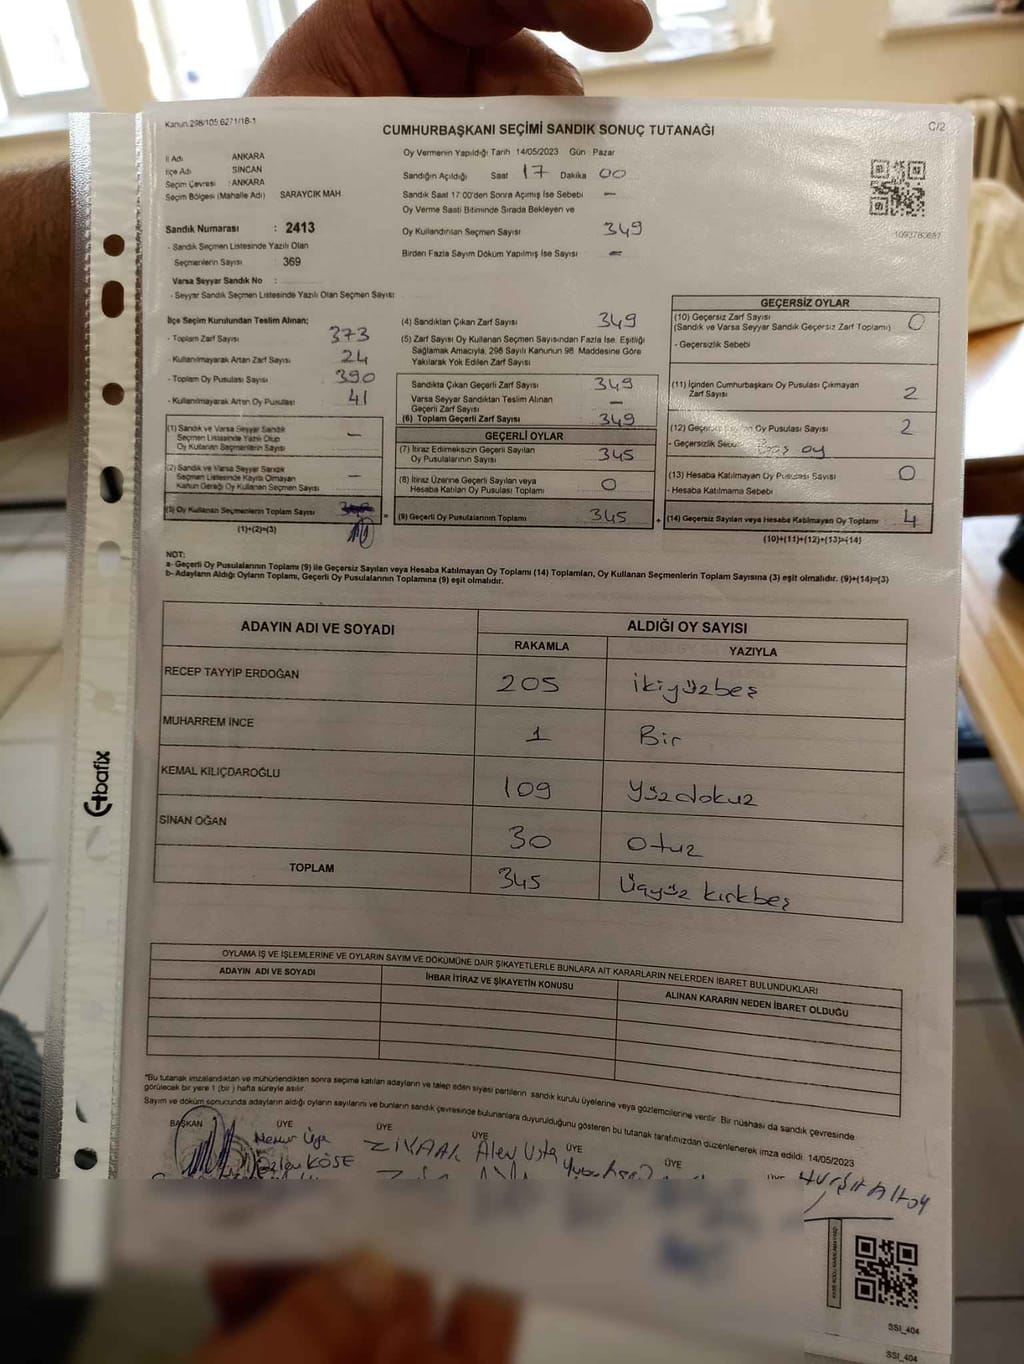 Kanun:298/105 6271/18-1
C/2
CUMHURBAŞKANI SEÇİMİ SANDIK SONUÇ TUTANAĞI
İl Adı ANKARA
İlçe Adı SİNCAN
Seçim Çevresi : ANKARA
Seçim Bölgesi (Mahalle Adı) SARAYCIK MAH
Sandık Numarası : 2413
- Sandık Seçmen Listesinde Yazılı Olan
Seçmenlerin Sayısı : 369
Varsa Seyyar Sandık No :
- Seyyar Sandık Seçmen Listesinde Yazılı Olan Seçmen Sayısı
Oy Vermenin Yapıldığı Tarih 14/05/2023 Gün Pazar
Sandığın Açıldığı Saat 17 Dakika 00
Sandık Saat 17:00'den Sonra Açılmış İse Sebebi –
Oy Verme Saati Bitiminde Sırada Bekleyen ve
Oy Kullandırılan Seçmen Sayısı 349
Birden Fazla Sayım Döküm Yapılmış İse Sayısı –
İlçe Seçim Kurulundan Teslim Alınan;
- Toplam Zarf Sayısı 373
- Kullanılmayarak Artan Zarf Sayısı 24
- Toplam Oy Pusulası Sayısı 390
- Kullanılmayarak Artan Oy Pusulası 41
(1) Sandık ve Varsa Seyyar Sandık
Seçmen Listesinde Yazılı Olup
Oy Kullanan Seçmenlerin Sayısı –
(2) Sandık ve Varsa Seyyar Sandık
Seçmen Listesinde Kayıtlı Olmayan
Kanun Gereği Oy Kullanan Seçmen Sayısı –
(3) Oy Kullanan Seçmenlerin Toplam Sayısı =
(1)+(2)=(3)
(4) Sandıktan Çıkan Zarf Sayısı 349
(5) Zarf Sayısı Oy Kullanan Seçmen Sayısından Fazla İse, Eşitliği
Sağlamak Amacıyla, 298 Sayılı Kanunun 98. Maddesine Göre
Yakılarak Yok Edilen Zarf Sayısı
Sandıkta Çıkan Geçerli Zarf Sayısı 349
Varsa Seyyar Sandıktan Teslim Alınan
Geçerli Zarf Sayısı –
(6) Toplam Geçerli Zarf Sayısı 349
GEÇERLİ OYLAR
(7) İtiraz Edilmeksizin Geçerli Sayılan
Oy Pusulalarının Sayısı 345
(8) İtiraz Üzerine Geçerli Sayılan veya
Hesaba Katılan Oy Pusulası Toplamı 0
(9) Geçerli Oy Pusulalarının Toplamı 345 +
GEÇERSİZ OYLAR
(10) Geçersiz Zarf Sayısı 0
(Sandık ve Varsa Seyyar Sandık Geçersiz Zarf Toplamı)
- Geçersizlik Sebebi
(11) İçinden Cumhurbaşkanı Oy Pusulası Çıkmayan
Zarf Sayısı 2
(12) Geçersiz Oy Pusulası Sayısı 2
- Geçersizlik Boş oy
(13) Hesaba Katılmayan Oy Pusulası Sayısı 0
- Hesaba Katılmama Sebebi
(14) Geçersiz Sayılan veya Hesaba Katılmayan Oy Toplamı 4
(10)+(11)+(12)+(13)=(14)
NOT:
a- Geçerli Oy Pusulalarının Toplamı (9) ile Geçersiz Sayılan veya Hesaba Katılmayan Oy Toplamı (14) Toplamları, Oy Kullanan Seçmenlerin Toplam Sayısına (3) eşit olmalıdır. (9)+(14)=(3)
b- Adayların Aldığı Oyların Toplamı, Geçerli Oy Pusulalarının Toplamına (9) eşit olmalıdır.
ADAYIN ADI VE SOYADI ALDIĞI OY SAYISI
RAKAMLA YAZIYLA
RECEP TAYYİP ERDOĞAN 205 ikiyüzbeş
MUHARREM İNCE 1 Bir
KEMAL KILIÇDAROĞLU 109 Yüzdokuz
SİNAN OĞAN 30 Otuz
TOPLAM 345 Üçyüz kırkbeş
OYLAMA İŞ VE İŞLEMLERİNE VE OYLARIN SAYIM VE DÖKÜMÜNE DAİR ŞİKAYETLERLE BUNLARA AİT KARARLARIN NELERDEN İBARET BULUNDUKLARI
ADAYIN ADI VE SOYADI İHBAR İTİRAZ VE ŞİKAYETİN KONUSU ALINAN KARARIN NEDEN İBARET OLDUĞU
*Bu tutanak imzalandıktan ve mühürlendikten sonra seçime katılan adayların ve talep eden siyasi partilerin sandık kurulu üyelerine veya gözlemcilerine verilir. Bir nüshası da sandık çevresinde
görülecek bir yere 1 (bir) hafta süreyle asılır.
Sayım ve döküm sonucunda adayların aldığı oyların sayılarını ve bunların sandık çevresinde bulunanlara duyurulduğunu gösteren bu tutanak tarafımızdan düzenlenerek imza edildi. 14/05/2023
BAŞKAN ÜYE ÜYE ÜYE ÜYE ÜYE
KÖSE Alev Usta
SSI_404
SSI_404
bafix